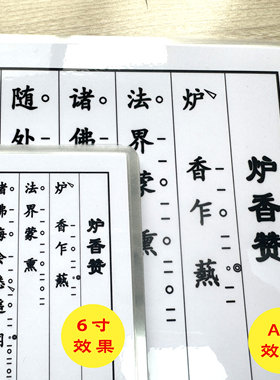 炉香赞
炉香乍爇
法界蒙熏
诸佛
随处
炉香赞
炉香乍爇
法界蒙熏
诸佛海会
6寸
效果
A
效